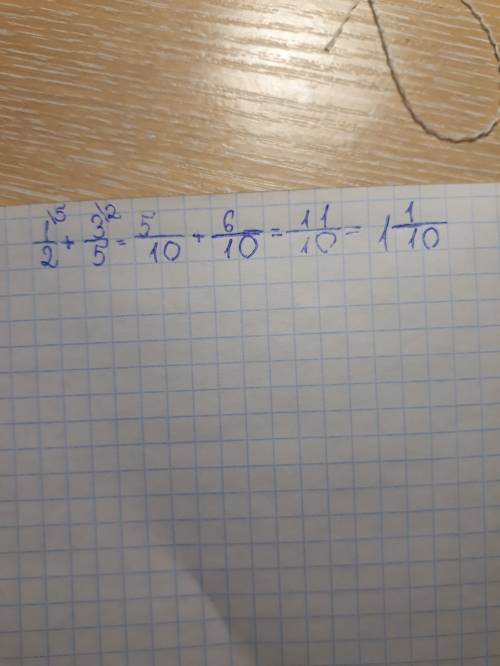 1\5/2 + 3\2/5 = 5/10 + 6/10 = 11/10 = 1 1/10